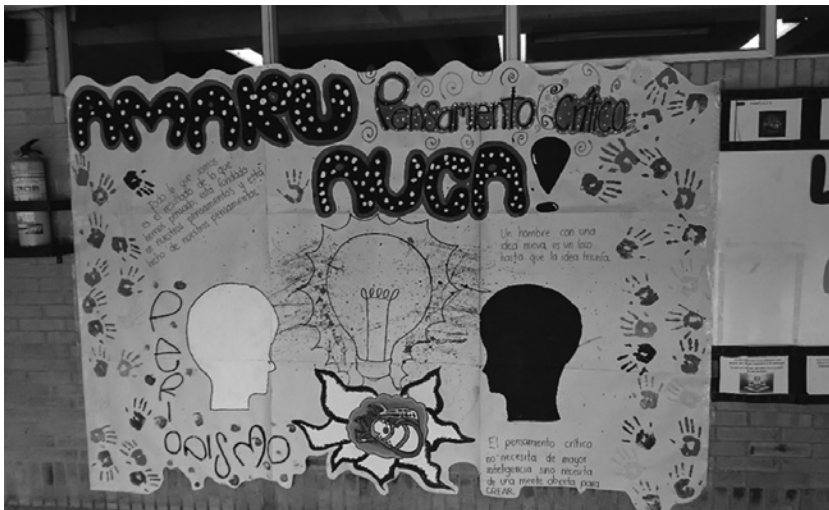 AMARU Pensamiento Crítico
AUCA!
Todo lo que somos
es el resultado de lo que
hemos pensado, está fundado
en nuestros pensamientos y está
hecho de nuestros pensamientos.
Un hombre con una
idea nueva es un loco
hasta que la idea triunfa.
PERIODISMO
El pensamiento crítico
no necesita de mayor
inteligencia sino necesita
de una mente abierta para
CREAR.